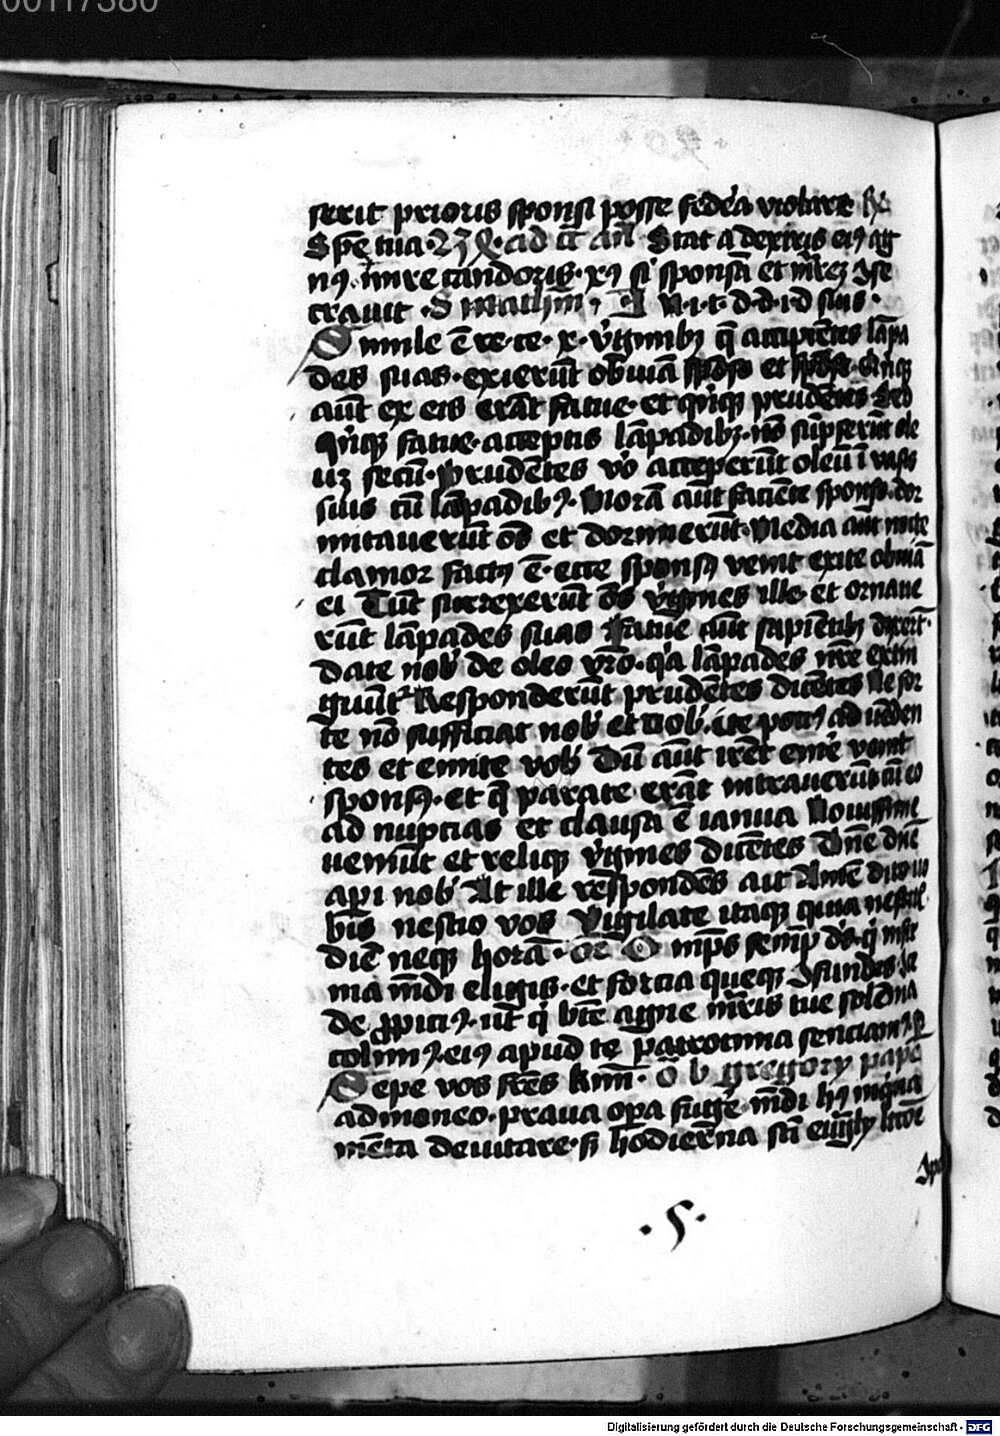 00117380
serit prioris sponsi posse fedea violare
Spē tua ad Stat a dextris eiꝯ ag
nꝯ niue candoris xꝯ si sponsā et
crauit Sm d d i d suis
Simile ē re ce x v̓ginibꝫ q̄ accipiētes lāpa
des suas exierūt obuiā spōso et spōse Qinqꝫ
aūt ex eis erāt fatue et qinqꝫ prudētes Sed
qinqꝫ fatue acceptis lāpadibꝫ nō sūpserūt ole
uꝫ secū Prudētes vo acceperūt oleū ī vasis
suis cū lāpadibꝯ Morā aūt faciēte sponso dor
mitauerūt oēs et dormierūt Media aūt nocte
clamor factꝯ ē ecce sponsꝯ venit exite obuiā
ei Tūc surrexerūt oēs v̓gines ille et ornaue
rūt lāpades suas Fatue aūt sapiētibꝫ dixert
date nob de oleo vro qa lāpades nre extin
guūt Responderūt prudētes dicētes Ne for
te nō sufficiat nob et vob ite potiꝯ ad uēden
tes et emite vob Dū aūt irēt eme venit
sponsꝯ et q̄ parate erāt intrauerūt cū eo
ad nuptias et clausa ē ianua Nouissime
ueniūt et reliq v̓gines dicētes Dn̄e dn̄e
aperi nob At ille respondēs ait Amē dico uo
bis nescio vos Vigilate itaqꝫ quia nescitis
diē neqꝫ horā Or̄ O mps semp ds q ī fir
ma mūdi eligis et forcia queqꝫ ꝯfundis ꝯce
de ꝓpiciꝯ ut q bte agne mris tue solēnia
colimꝯ eiꝯ apud te patrocinia senciamꝯ p
Sepe vos fr̄es kmi O b gregory pape
admoneo praua opa fugē mūdi hꝯ inqina
mēta deuitare sꝫ hodierna sci euāgly lectōe
. 5 .
Digitalisierung gefördert durch die Deutsche Forschungsgemeinschaft - DFG